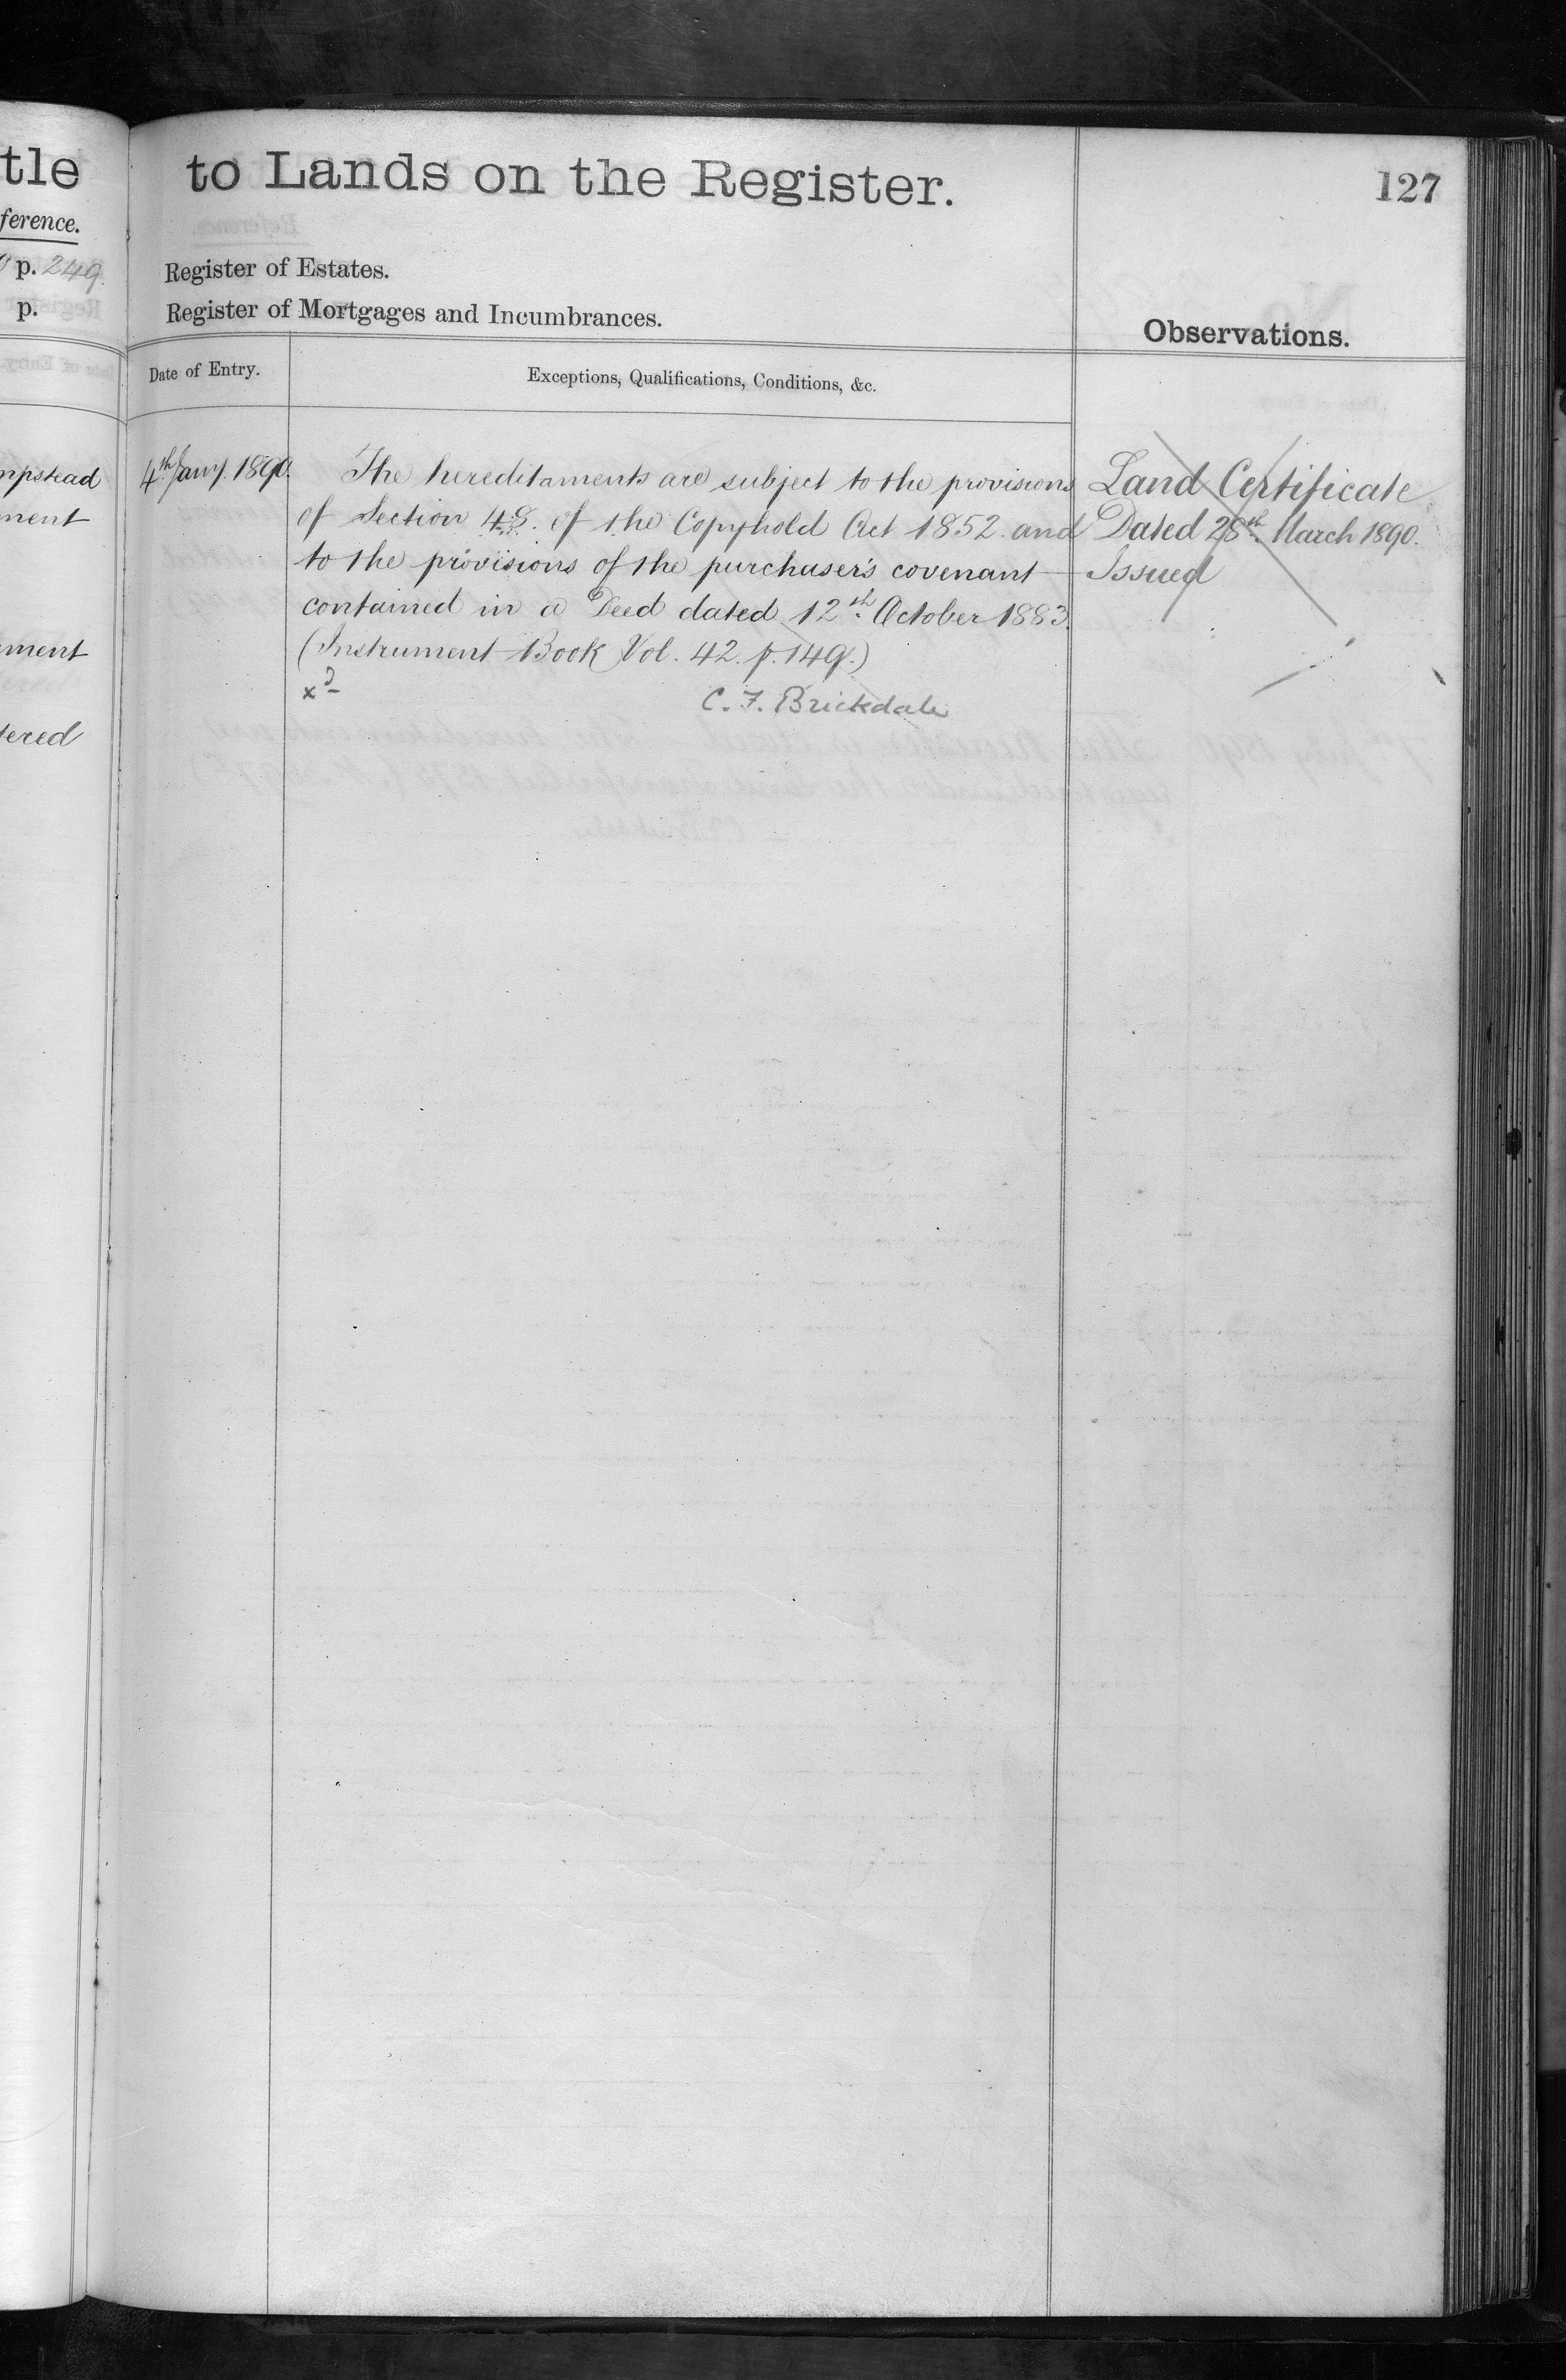 tle
ference.
p. 249.
p.
mpstead
ment
ment
tered
to Lands on the Register.
127
Register of Estates.
Register of Mortgages and Incumbrances.
Observations.
Date of Entry.
Exceptions, Qualifications, Conditions, &c.
4th Jany. 1890.
The hereditaments are subject to the provisions
of Section 48. of the Copyhold Act 1852 and
to the provisions of the purchaser's covenant
contained in a Deed dated 12th October 1883.
(Instrument Book Vol. 42. p. 149.)
C. F. Brickdale
Land Certificate
Dated 28th March 1890.
Issued